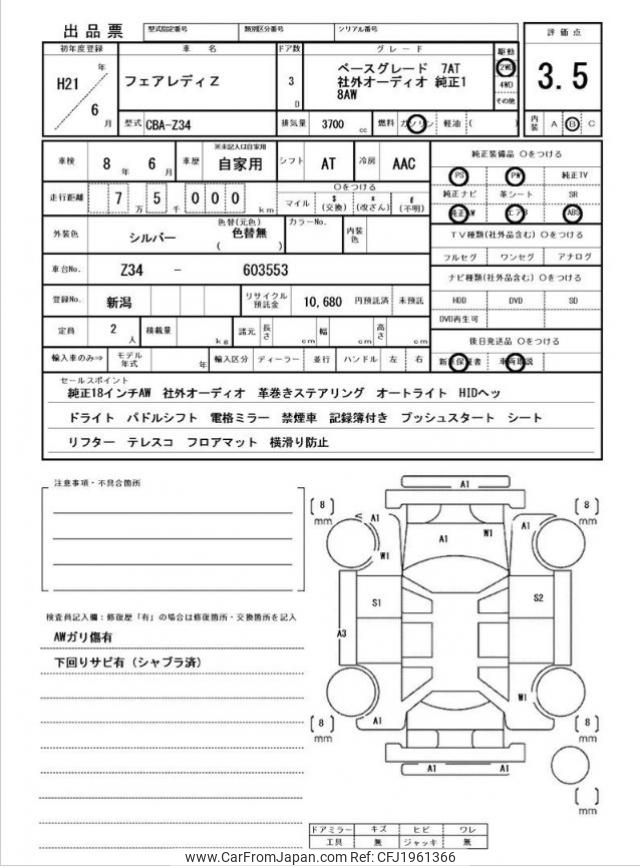 出品票 型式指定番号 類別区分番号 シリアル番号
初年度登録 車 名 ドア数 グレード 駆動 評価点
H21 年 6 月
フェアレディZ
3 D
ベースグレード 7AT
社外オーディオ 純正1
8AW
2WD
4WD
その他
3.5
型式 CBA-Z34 排気量 3700 cc 燃料 ガソリン 軽油 ( ) 内装 A B C
車検 8 年 6 月 車歴 ※未記入は自家用 自家用 シフト AT 冷房 AAC
純正装備品 ○をつける
PS PW 純正TV
純正ナビ 革シート SR
純正AW エアB ABS
走行距離 7 万 5 千 0 0 0 km
○をつける
マイル $ (交換) * (改ざん) # (不明)
外装色 シルバー 色替(元色) 色替無 ( ) カラーNo. 内装色
TV種類(社外品含む) ○をつける
フルセグ ワンセグ アナログ
車台No. Z34 - 603553
ナビ種類(社外品含む) ○をつける
HDD DVD SD
DVD再生可
登録No. 新潟 リサイクル預託金 10,680 円預託済 未預託
定員 2 人 積載量 kg 諸元 長さ cm 幅 cm 高さ cm
後日発送品 ○をつける
新車保証書 車両取説
輸入車のみ⇒ モデル年式 年 輸入区分 ディーラー 並行 ハンドル 左 右
セールスポイント
純正18インチAW 社外オーディオ 革巻きステアリング オートライト HIDヘッ
ドライト パドルシフト 電格ミラー 禁煙車 記録簿付き プッシュスタート シート
リフター テレスコ フロアマット 横滑り防止
注意事項・不具合箇所
検査員記入欄：修復歴「有」の場合は修復箇所・交換箇所を記入
AWガリ傷有
下回りサビ有（シャブラ済）
A1
[ 8 ] mm
[ 8 ] mm
A1 A1 W1 A1
W1
S1 S2
A3
W1
A1
[ 8 ] mm
[ 8 ] mm
A1 A1
[ ] mm
ドアミラー キズ ヒビ ワレ
工具 無 ジャッキ 無
www.CarFromJapan.com Ref: CFJ1961366